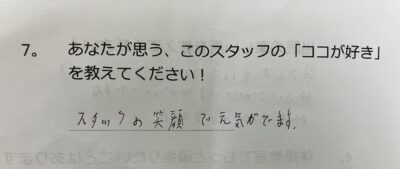 7。 あなたが思う、このスタッフの「ココが好き」
を教えてください！
スタッフの笑顔で元気がでます。